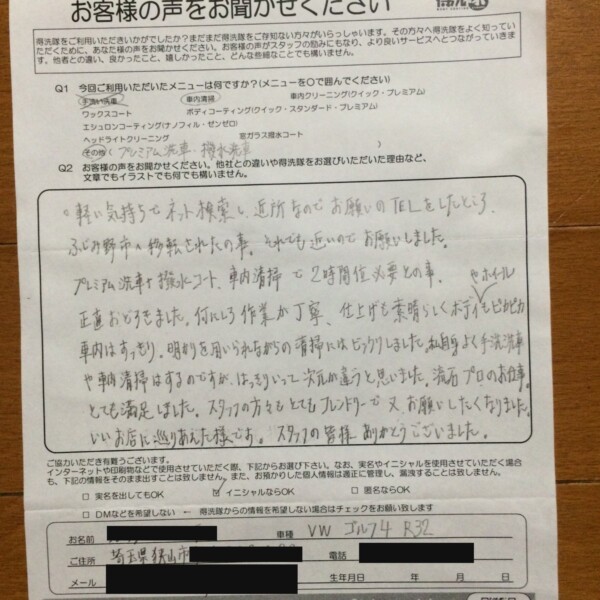 お客様の声をお聞かせください
得洗隊をご利用いただきいかがでしたか？まだまだ得洗隊をご存知ない方々がいらっしゃいます。その方々へ得洗隊をよく知っていただくために、あなた様の声をお聞かせください。お客様の声がスタッフの励みにもなり、より良いサービスへとつながっていきます。他者との違い、良かったこと、嬉しかったこと、どんな些細なことでも構いません。
Q1 今回ご利用いただいたメニューは何ですか？(メニューを○で囲んでください)
手洗い洗車 車内清掃 車内クリーニング(クイック・プレミアム)
ワックスコート ボディコーティング(クイック・スタンダード・プレミアム)
エシュロンコーティング(ナノフィル・ゼンゼロ)
ヘッドライトクリーニング 窓ガラス撥水コート
その他( プレミアム洗車 撥水洗車 )
Q2 お客様の声をお聞かせください。他社との違いや得洗隊をお選びいただいた理由など、
文章でもイラストでも何でも構いません。
軽い気持ちでネット検索し、近所なのでお願いのTELをしたところ、
ふじみ野市へ移転されたの事。それでも近いのでお願いしました。
プレミアム洗車+撥水コート、車内清掃で2時間位必要との事。
正直おどろきました。何にしろ作業が丁寧、仕上げも素晴らしくボディやホイールもピカピカ
車内はすっきり。明かりを用いられながらの清掃にはビックリしました。私自身よく手洗洗車
や車内清掃はするのですが、はっきりいって次元が違うと思いました。流石プロのお仕事。
とても満足しました。スタッフの方々もとてもフレンドリーで又、お願いしたくなりました。
いいお店に巡りあえた様です。スタッフの皆様ありがとうございました。
ご協力いただき有難うございます。
インターネットや印刷物などで使用させていただく際、下記からお選び下さい。なお、実名やイニシャルを使用させていただく場合
も、下記の情報をそのまま出すことは致しません。また、お預かりした個人情報は適正に管理し、漏洩することは致しません。
□ 実名を出してもOK ☑ イニシャルならOK □ 匿名ならOK
□ DMなどを希望しない ← 得洗隊からの情報を希望しない場合はチェックをお願い致します
お名前 車種 VW ゴルフ4 R32
ご住所 埼玉県狭山市 電話
メール 生年月日 年 月 日